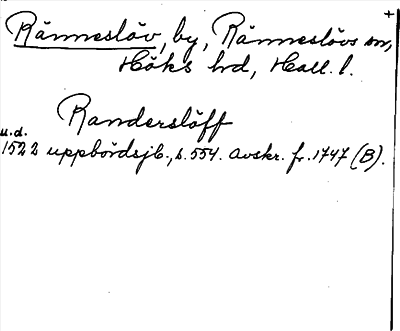 +
Ränneslöv, by, Ränneslövs sn,
Höks hd, Hall. l.
Randerslöff
u.d.
1522 uppbördsjb., s. 554. avskr. fr. 1747 (B).